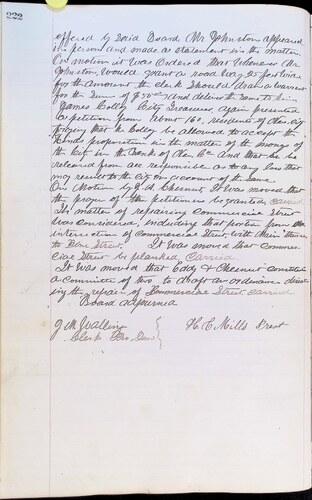 222
offered by said Board Mr Johnston appeared
in person and made a statement in the matter
On motion it was Ordered that whenever Mr
Johnston would grant a road way to
for the amount the clerk should draw a warrant
for the sum of and deliver the same to him
James Eddy City Treasurer again presented
a petition from about 160 residents of the city
praying that he Eddy be allowed to accept the
Bonds proposition in the matter of the moneys of
the City in the Bank of and that he be
released from all responsible as to any loss that
may result to the city on account of the same
On motion by J. A. Chesnut It was moved that
the prayer of the petitioners be granted carried
The matter of repairing commercial Street
was considered, including that portion from the
intersection of commercial Street with Main Street
to Street. It was moved that commer
cial Street be planked Carried
It was moved that Eddy & Chesnut constitute
a committee of two to draft an ordinance direct
ing the repair of Commercial Street carried
Board adjourned
J M Walling
Clerk Pro Tem
H. C. Mills Prest